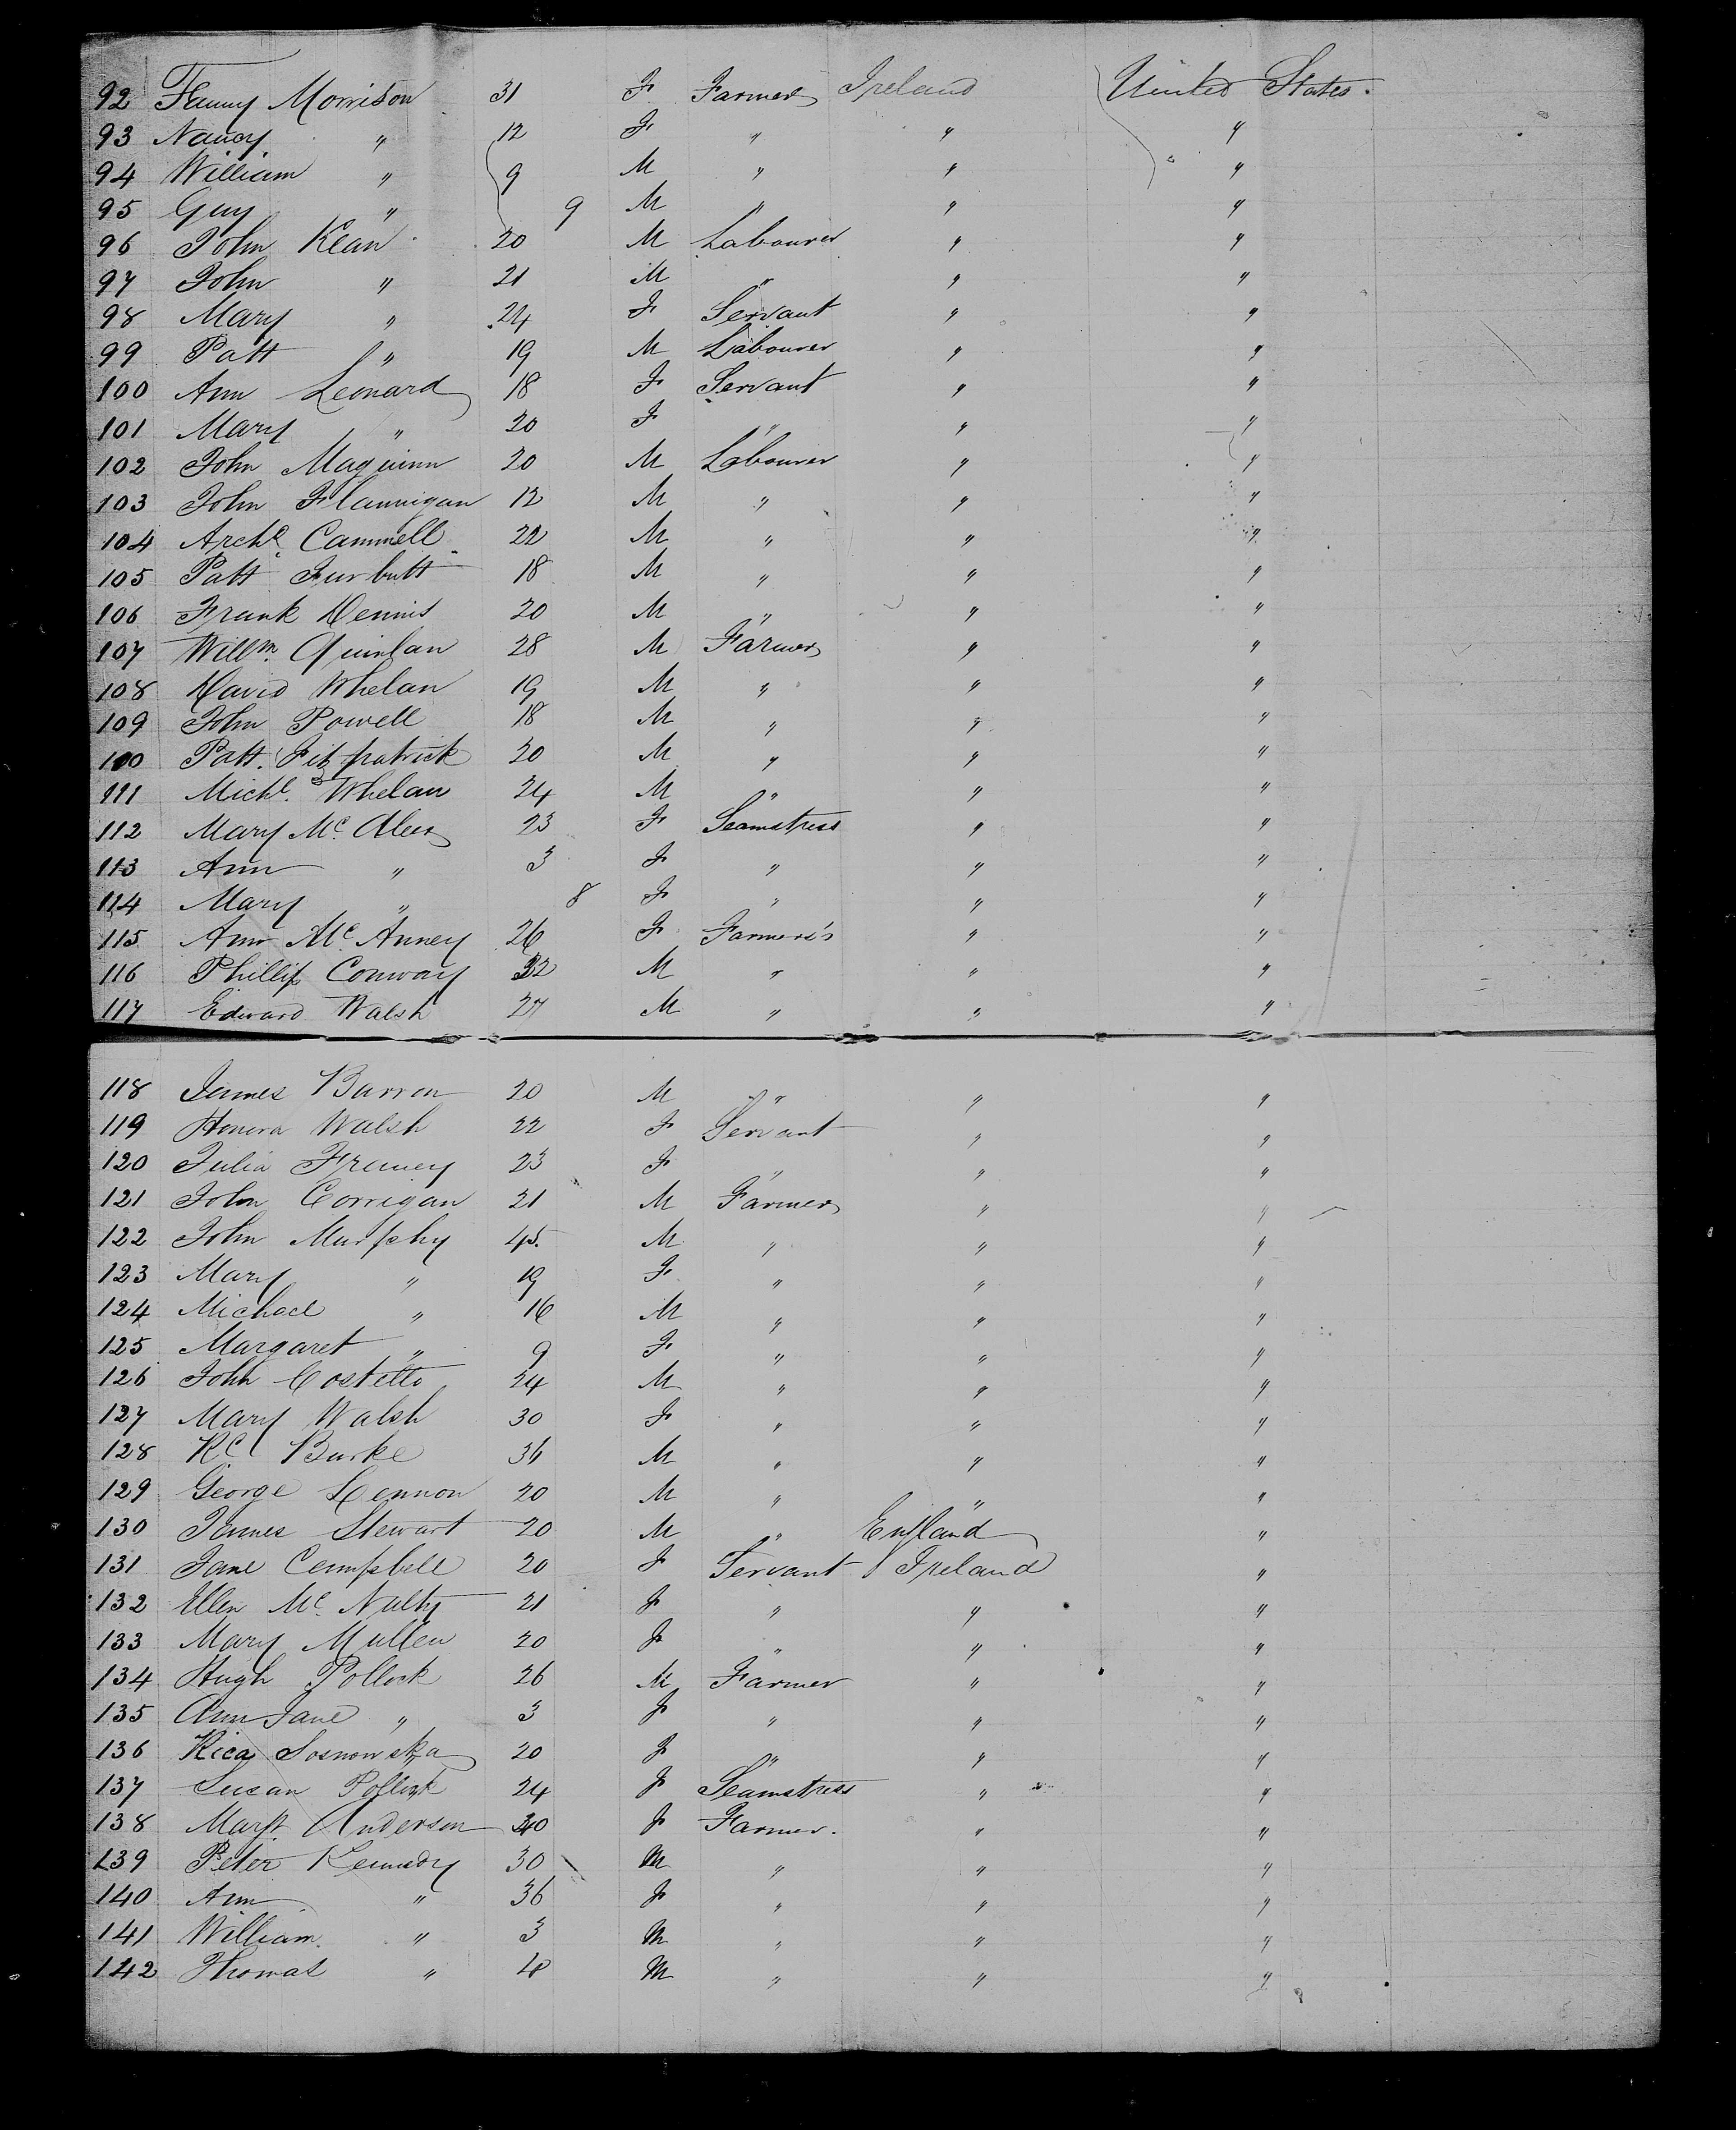 92 Fanny Morrison 31 F Farmer Ireland United States.
93 Nancy " 12 F " " "
94 William " 9 M " " "
95 Guy " 9 M " " "
96 John Kean 20 M Labourer " "
97 John " 21 M " " "
98 Mary " 24 F Servant " "
99 Patt " 19 M Labourer " "
100 Ann Leonard 18 F Servant " "
101 Mary " 20 F " " "
102 John Maguinn 20 M Labourer " "
103 John Flannigan 12 M " " "
104 Archd Cammell 22 M " " "
105 Patt Furbutt 18 M " " "
106 Frank Dennis 20 M " " "
107 Willm. Quinlan 28 M Farmer " "
108 David Whelan 19 M " " "
109 John Powell 18 M " " "
100 Patt. Fitzpatrick 20 M " " "
111 Michl. Whelan 24 M " " "
112 Mary Mc. Aleer 23 F Seamstress " "
113 Ann " 3 F " " "
114 Mary " 8 F " " "
115 Ann Mc. Anney 26 F Farmer's " "
116 Phillip Conway 32 M " " "
117 Edward Walsh 27 M " " "
118 James Barron 20 M " " "
119 Honora Walsh 22 F Servant " "
120 Julia Framey 23 F " " "
121 John Corrigan 21 M Farmer " "
122 John Murphy 45. M " " "
123 Mary " 19 F " " "
124 Michael " 16 M " " "
125 Margaret " 9 F " " "
126 John Costello 24 M " " "
127 Mary Walsh 30 F " " "
128 Rd Burke 36 M " " "
129 George Lennon 20 M " " "
130 James Stewart 20 M " England "
131 Jane Campbell 20 F Servant Ireland "
132 Ellen Mc. Nulty 21 F " " "
133 Mary Mullen 20 F " " "
134 Hugh Pollock 26 M Farmer " "
135 Ann Jane " 3 F " " "
136 Rica Sosnowska 20 F " " "
137 Susan Pollock 24 F Seamstress " "
138 Margt. Anderson 40 F Farmer. " "
139 Peter Kennedy 30 M " " "
140 Ann " 36 F " " "
141 William " 3 M " " "
142 Thomas " M " " "